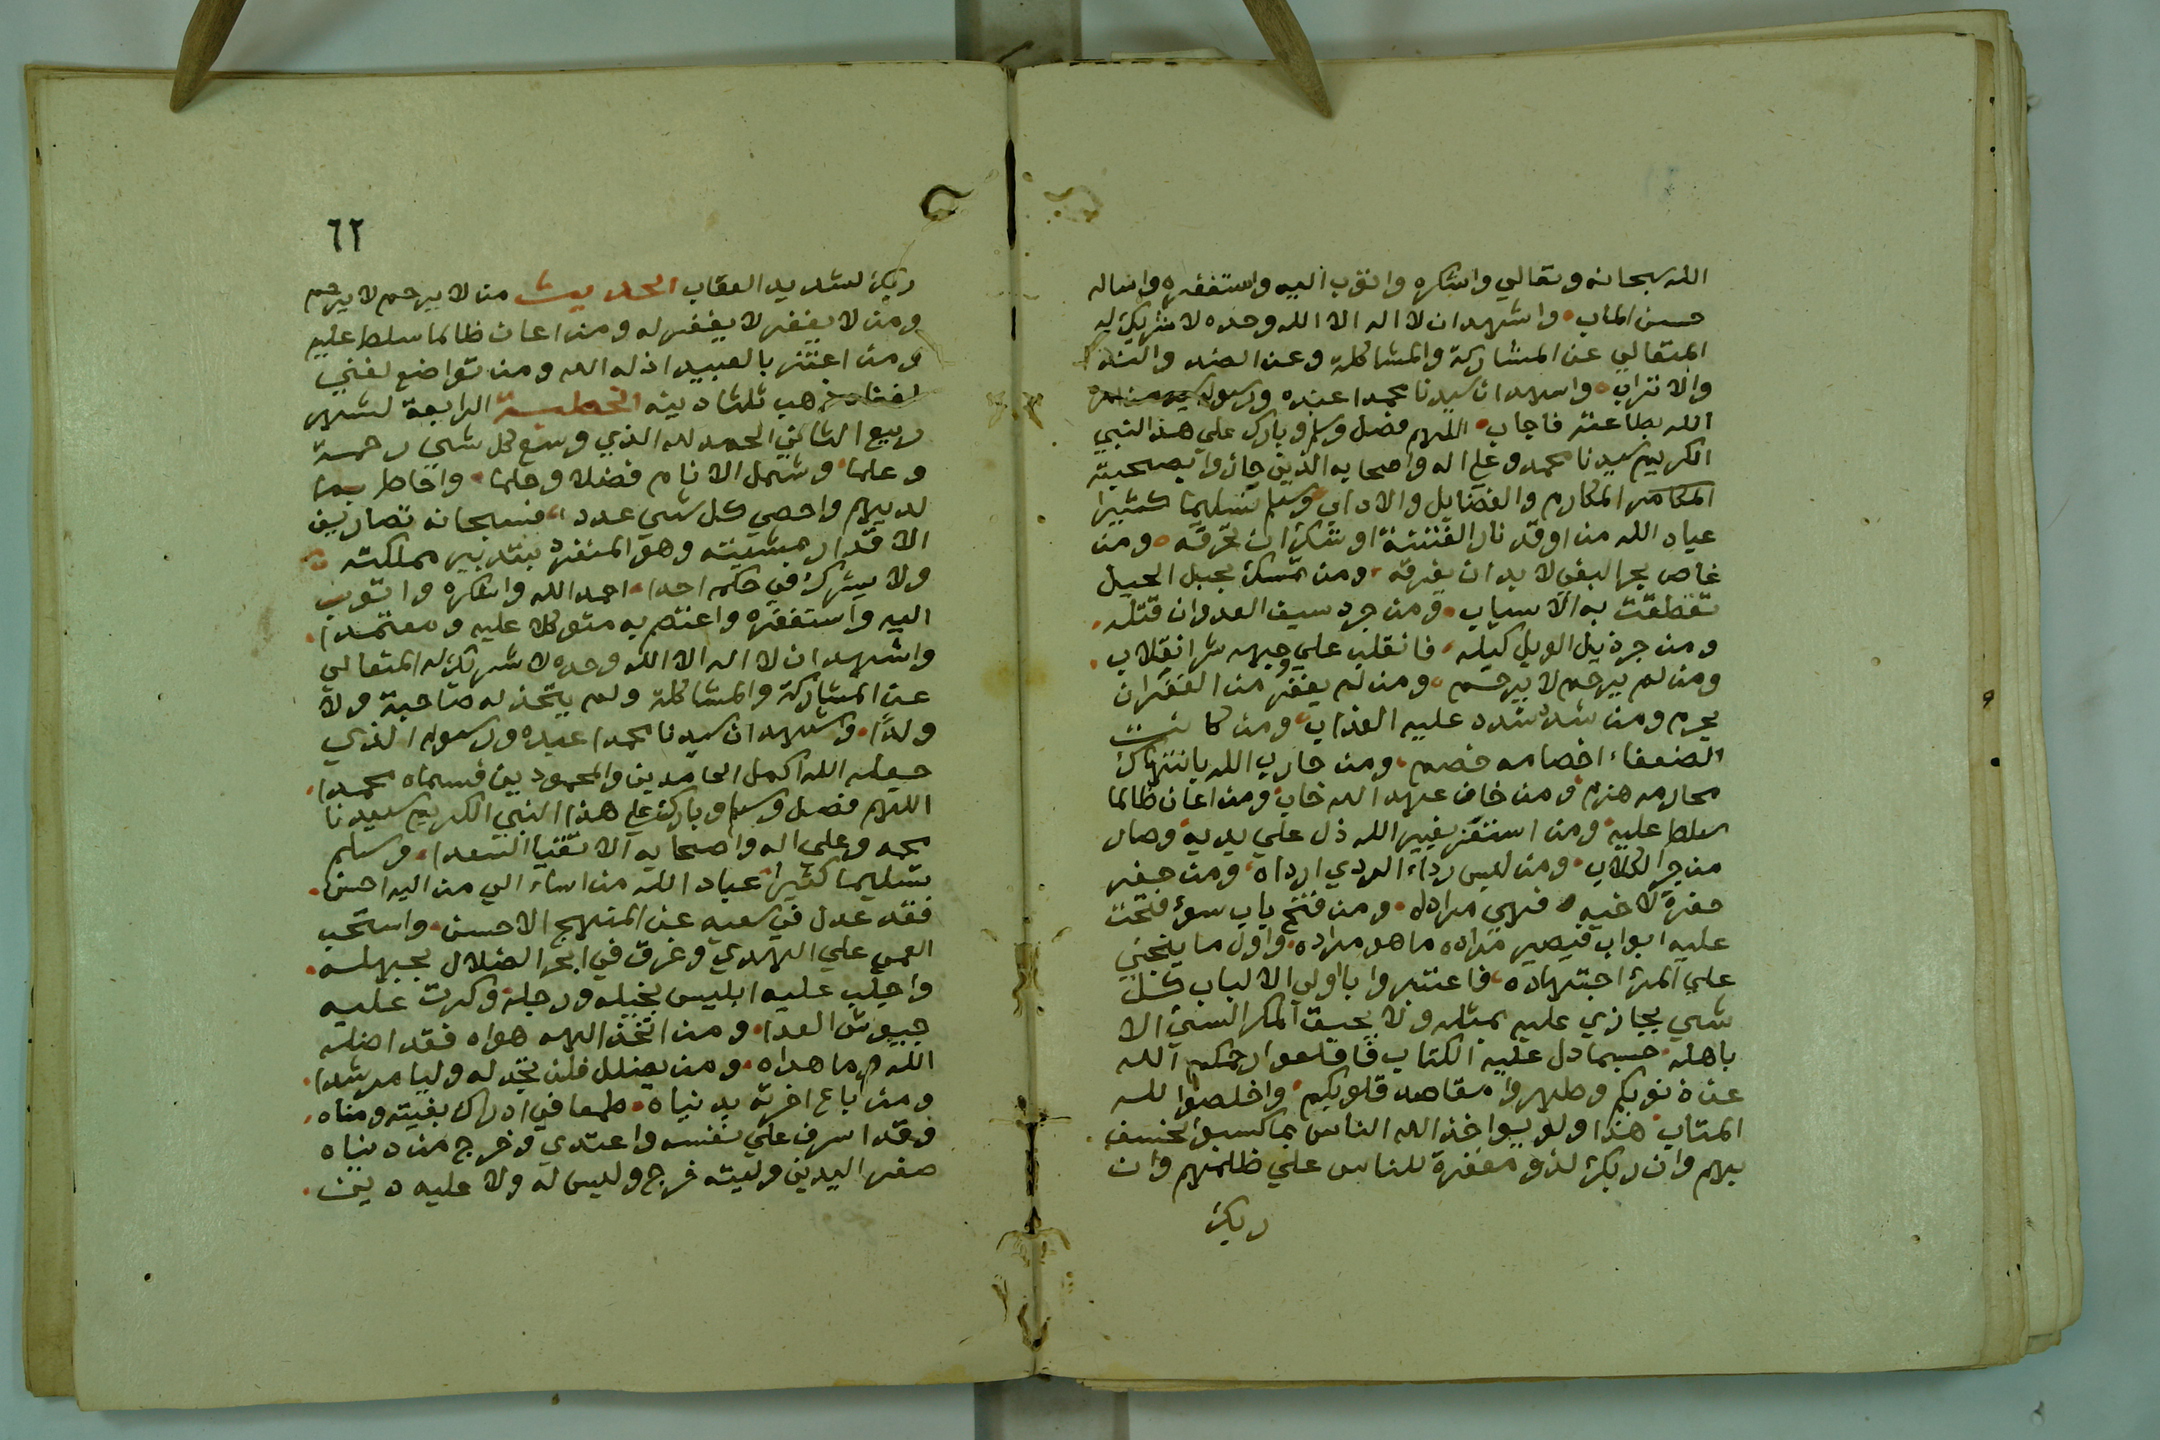 الله سبحانه وتعالي واشكره واتوب اليه واستغفره واساله
حسن الماب واشهد ان لا اله الا الله وحده لا شريك له
المتعالي عن المشاركة والمشاكلة وعن الضد والند
والاتراب واشهد ان سيدنا محمدا عبده ورسوله
الله بطاعته فاجاب اللهم فصل وسلم وبارك علي هذا النبي
الكريم سيدنا محمد وعلي اله واصحابه الذين حازوا بصحبته
المكارم والفضايل والاداب وسلم تسليما كثيرا
عباد الله من اوقد نار الفتنة اوشكت ان تحرقه ومن
غاص بحر البغي لا بد ان يغرقه ومن تمسك بحبل الحيل
تقطعت به الاسباب ومن جرد سيف العدوان قتله
ومن جر ذيل الويل كبله فانقلب علي وجهه شر انقلاب
ومن لم يرحم لا يرحم ومن لم يغفر من الغفران
يحرم ومن شدد شدد عليه العذاب ومن كانت
الضعفاء اخصامه خصم ومن حارب الله بانتهاك
محارمه هزم ومن خان عهد الله خاب ومن اعان ظالما
سلط عليه ومن استعز بغير الله ذل علي يديه وصار
من الكلاب ومن لبس رداء الردي ارداه ومن حفر
حفرة لاخيه فهي مرادله ومن فتح باب سوء فتحت
عليه ابواب فيصير مراده ما هو مراده واول ما يجني
علي المرء اجتهاده فاعتبروا يا اولي الالباب كل
شي يجازي عليه بمثله ولا يحيق المكر السيئ الا
باهله حسبما دل عليه الكتاب فاقلعوا رحمكم الله
عن ذنوبكم وطهروا مقاصد قلوبكم واخلصوا لله
المتاب هذا ولو يواخذ الله الناس بما كسبوا لخسف
بهم وان ربك لذو مغفرة للناس علي ظلمهم وان
ربك
٦٢
ربك لشديد العقاب الحديث من لا يرحم لا يرحم
ومن لا يغفر لا يغفر له ومن اعان ظالما سلط عليه
ومن اعتز بالعبيد اذله الله ومن تواضع لغني
لغناه ذهب ثلثا دينه الخطبة الرابعة لشهر
ربيع الثاني الحمد لله الذي وسع كل شي رحمة
وعلما وشمل الانام فضلا وحلما واحاط بما
لديهم واحصي كل شي عددا فسبحانه تصاريف
الاقدار بمشيئته وهو المنفرد بتدبير مملكته
ولا يشرك في حكمه احدا احمد الله واشكره واتوب
اليه واستغفره واعتصم به متوكلا عليه ومعتمدا
واشهد ان لا اله الا الله وحده لا شريك له المتعالي
عن المشاركة والمشاكلة ولم يتخذ له صاحبة ولا
ولدا واشهد ان سيدنا محمدا عبده ورسوله الذي
جعله الله اكمل الحامدين والمحمودين فسماه محمدا
اللهم فصل وسلم وبارك علي هذا النبي الكريم سيدنا
محمد وعلي اله واصحابه الاتقيا السعدا وسلم
تسليما كثيرا عباد الله من اساء الي من اليه احسن
فقد عدل في سعيه عن المنهج الاحسن واستحب
العمي علي الهدي وغرق في ابحر الضلال بجهله
واجلب عليه ابليس بخيله ورجله وكرت عليه
جيوش العدا ومن اتخذ الهه هواه فقد اضله
الله وما هداه ومن يضلل فلن تجد له وليا مرشدا
ومن باع اخرته بدنياه طمعا في ادراك بغيته ومناه
فقد اسرف علي نفسه واعتدي وخرج من دنياه
صفر اليدين وليته خرج وليس له ولا عليه دين